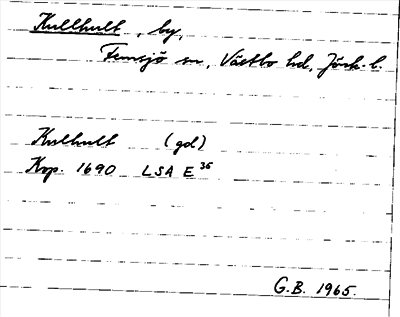 Kullhult, by,
Femsjö sn, Västbo hd, Jönk. l.
Kulhult (gd)
Kop. 1690 LSA E 36
G.B. 1965.